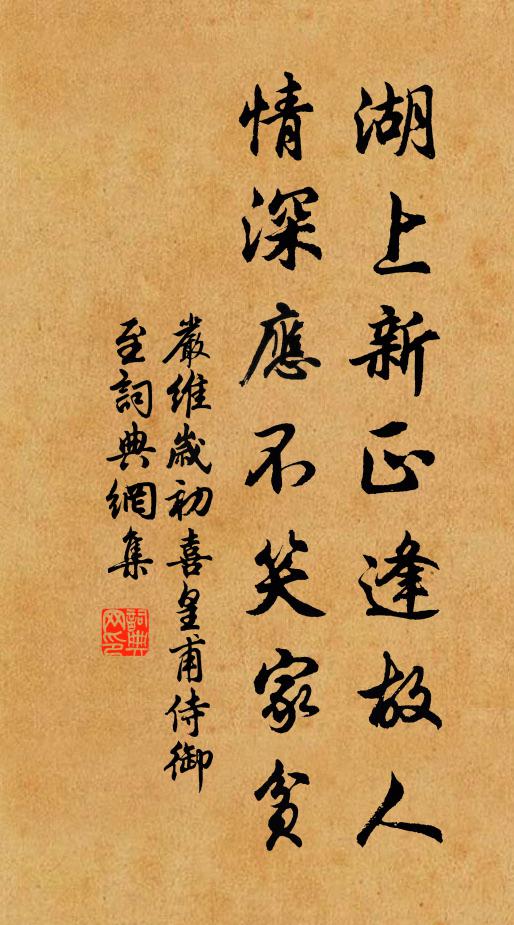 湖上新正逢故人
情深應不笑家貧
嚴維歲初喜皇甫侍御
至詞典網集
詞典網印